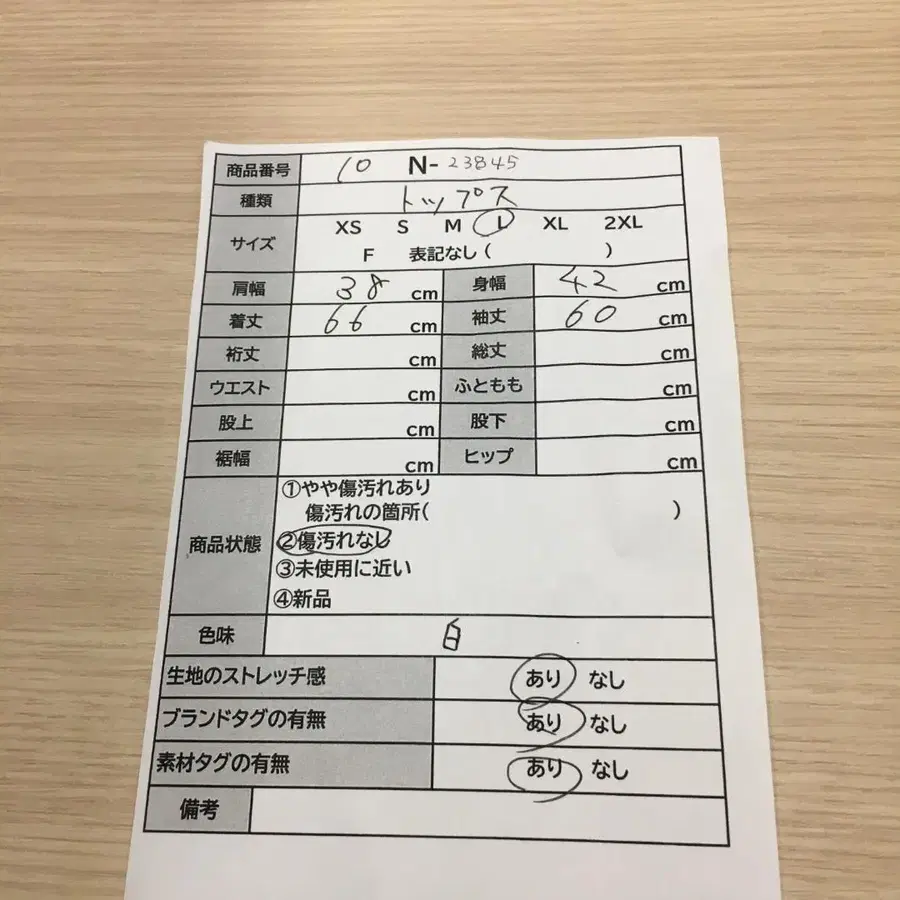 商品番号 10 N-23845
種類 トップス
サイズ XS S M L XL 2XL
F 表記なし( )
肩幅 38 cm 身幅 42 cm
着丈 66 cm 袖丈 60 cm
裄丈 cm 総丈 cm
ウエスト cm ふともも cm
股上 cm 股下 cm
裾幅 cm ヒップ cm
商品状態 ①やや傷汚れあり
傷汚れの箇所( )
②傷汚れなし
③未使用に近い
④新品
色味 白
生地のストレッチ感 あり なし
ブランドタグの有無 あり なし
素材タグの有無 あり なし
備考